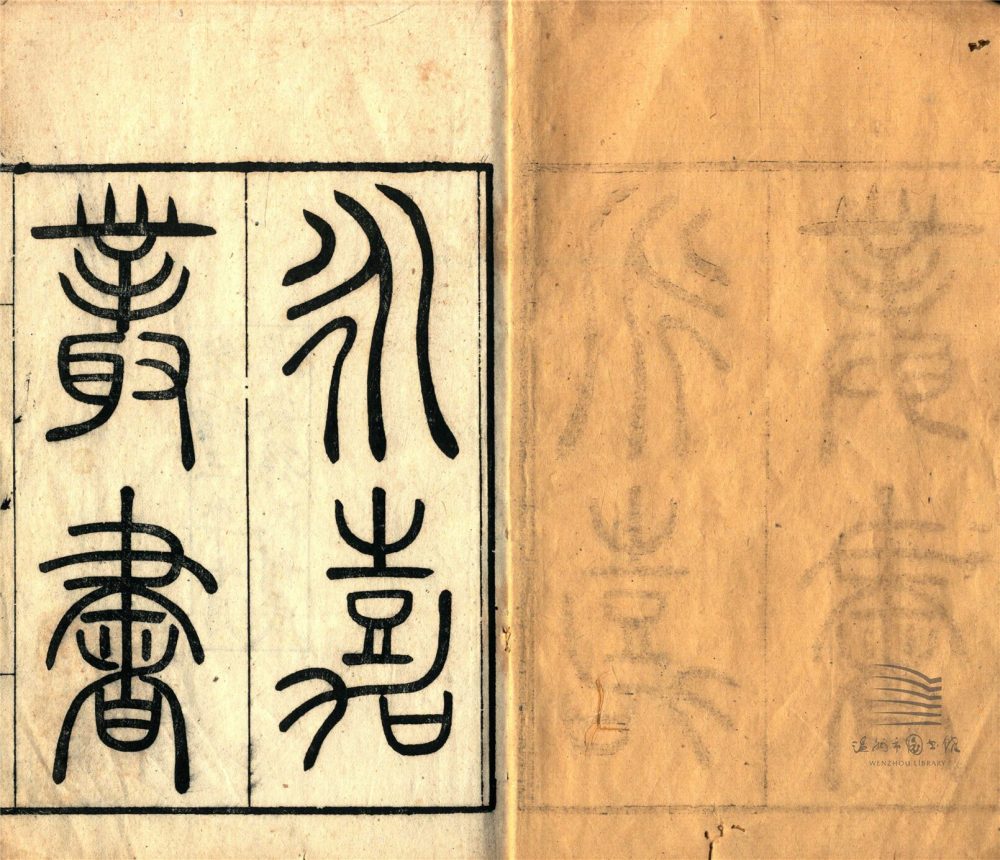 永嘉
叢書
温州市图书馆
WENZHOU LIBRARY